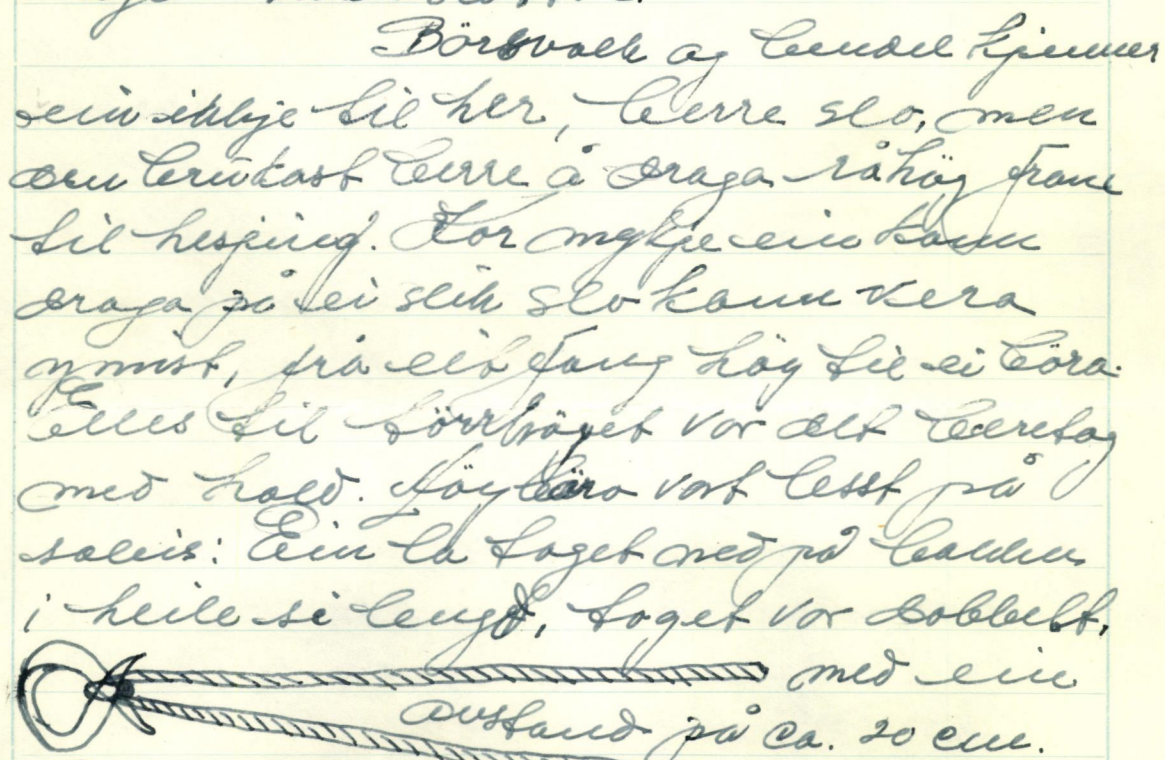 Börsvoll og bendel kjenner
ein ikkje til her, berre slo, men
den brukast berre å draga råhöy fram
til hesjing. Kor mykje ein kann
draga på ei slik slo kann vera
ymist, frå eit fang höy til ei böra.
Elles til törrhöyet vor det beretog
med hald. Höyböra vart lesst på
soleis: Ein la toget ned på bakken
i heile si lengd, toget vor dobbelt,
med ein
avstand på ca. 20 cm.